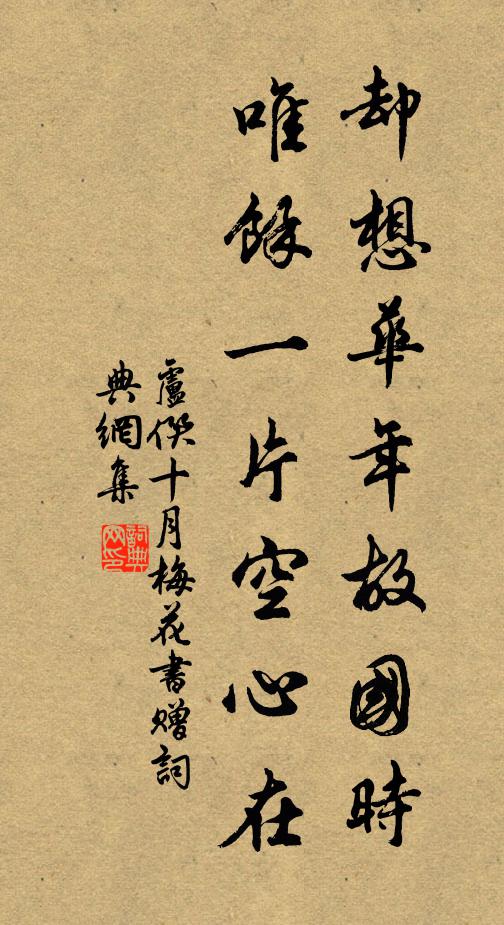 却想華年故國時
唯餘一片空心在
盧僎十月梅花書贈詞
典網集
詞典
网印